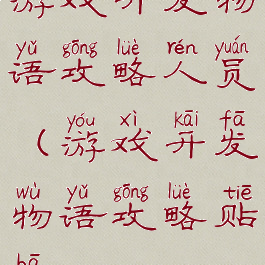 游戏开发物
yǔ gōng lüè rén yuán
语攻略人员
yóu xì kāi fā
（游戏开发
wù yǔ gōng lüè tiē
物语攻略贴
bā